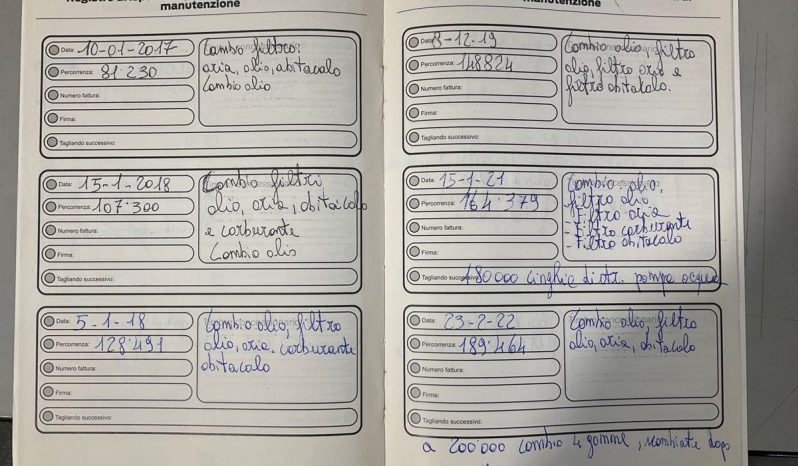 manutenzione
Data: 10-01-2017
Percorrenza: 81 230
Numero fattura:
Firma:
Tagliando successivo:
Cambio filtro:
aria, olio, abitacolo
Cambio olio
Data: 15-1-2018
Percorrenza: 107·300
Numero fattura:
Firma:
Tagliando successivo:
Cambio filtri
olio, aria, abitacolo
e carburante
Cambio olio
Data: 5-1-18
Percorrenza: 128·491
Numero fattura:
Firma:
Tagliando successivo:
Cambio olio, filtro
olio, aria. carburante
abitacolo
manutenzione
Data: 8-12-19
Percorrenza: 148824
Numero fattura:
Firma:
Tagliando successivo:
Cambio olio, filtro
olio, filtro aria e
filtro abitacolo.
Data: 15-1-21
Percorrenza: 164·379
Numero fattura:
Firma:
Tagliando successivo: 180000 cinghie distr. pompe acqua
Cambio olio,
filtro olio
- Filtro aria
- Filtro carburante
- Filtro abitacolo
Data: 23-2-22
Percorrenza: 189·464
Numero fattura:
Firma:
Tagliando successivo:
Cambio olio, filtro
olio, aria, abitacolo
a 200'000 cambio 4 gomme, dopo